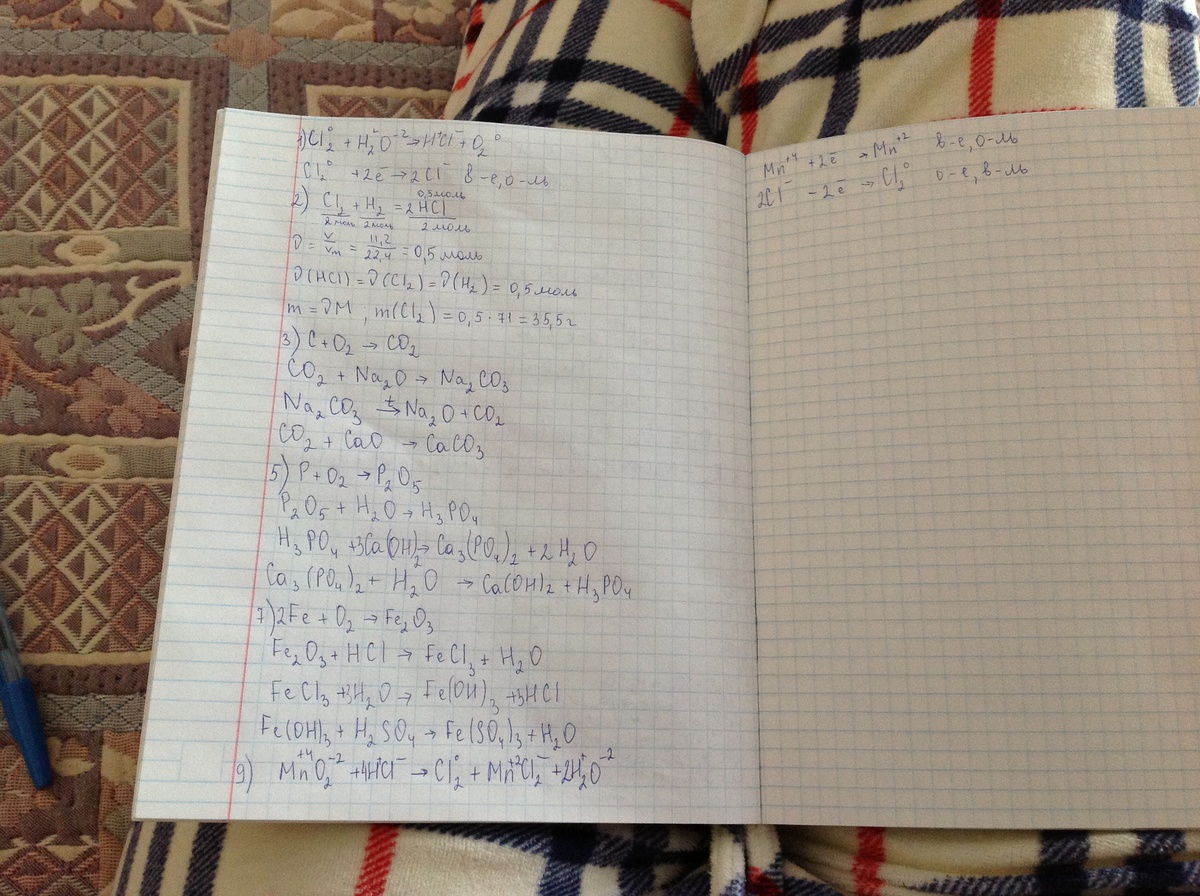 1) Cl₂⁰ + H₂⁺O⁻² → H⁺Cl⁻ + O₂⁰
Cl₂⁰ + 2ē → 2Cl⁻ в-е, о-ль
0,5 моль
2) Cl₂ + H₂ = 2HCl
2 моль 2 моль 2 моль
ν = V/Vm = 11,2/22,4 = 0,5 моль
ν(HCl) = ν(Cl₂) = ν(H₂) = 0,5 моль
m = νM, m(Cl₂) = 0,5 · 71 = 35,5 г
3) C + O₂ → CO₂
CO₂ + Na₂O → Na₂CO₃
Na₂CO₃ →t Na₂O + CO₂
CO₂ + CaO → CaCO₃
5) P + O₂ → P₂O₅
P₂O₅ + H₂O → H₃PO₄
H₃PO₄ + 3Ca(OH)₂ → Ca₃(PO₄)₂ + 2H₂O
Ca₃(PO₄)₂ + H₂O → Ca(OH)₂ + H₃PO₄
7) 2Fe + O₂ → Fe₂O₃
Fe₂O₃ + HCl → FeCl₃ + H₂O
FeCl₃ + 3H₂O → Fe(OH)₃ + 3HCl
Fe(OH)₃ + H₂SO₄ → Fe(SO₄)₃ + H₂O
9) Mn⁺⁴O₂⁻² + 4H⁺Cl⁻ → Cl₂⁰ + Mn⁺²Cl₂⁻ + 2H₂⁺O⁻²
Mn⁺⁴ + 2ē → Mn⁺² в-е, о-ль
2Cl⁻ - 2ē → Cl₂⁰ о-е, в-ль